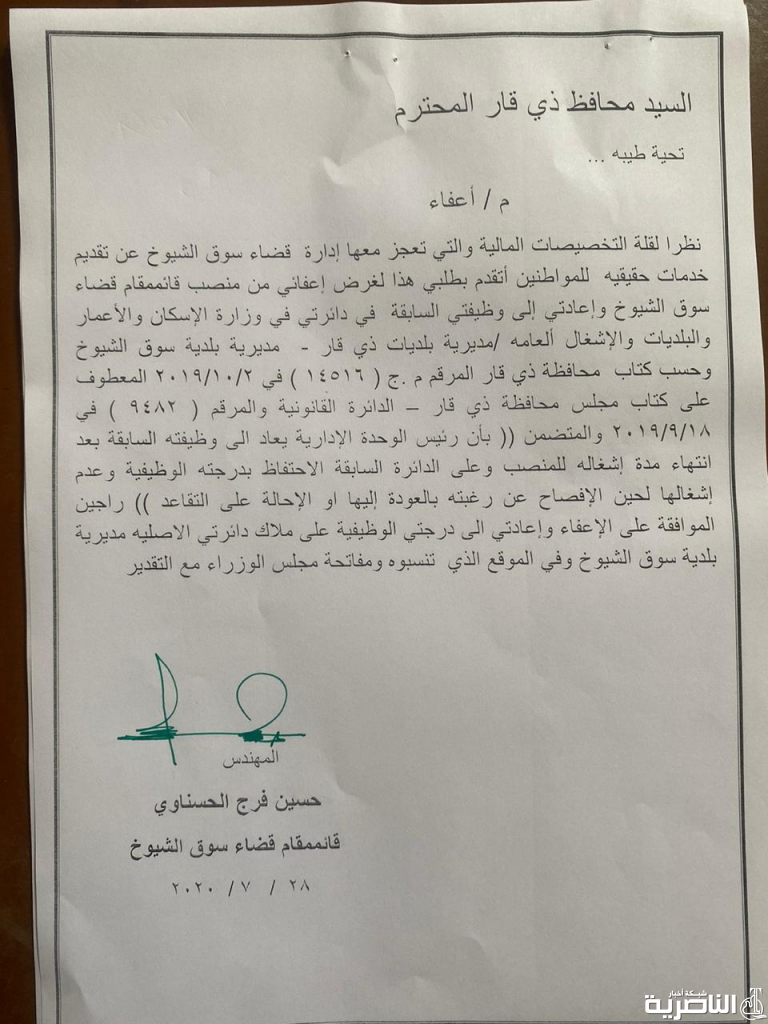 السيد محافظ ذي قار المحترم
تحية طيبه ...
م / أعفاء
نظرا لقلة التخصيصات المالية والتي تعجز معها إدارة قضاء سوق الشيوخ عن تقديم
خدمات حقيقيه للمواطنين أتقدم بطلبي هذا لغرض إعفائي من منصب قائممقام قضاء
سوق الشيوخ وإعادتي إلى وظيفتي السابقة في دائرتي في وزارة الإسكان والأعمار
والبلديات والإشغال ألعامه /مديرية بلديات ذي قار - مديرية بلدية سوق الشيوخ
وحسب كتاب محافظة ذي قار المرقم م .ج ( ١٤٥١٦ ) في ٢٠١٩/١٠/٢ المعطوف
على كتاب مجلس محافظة ذي قار – الدائرة القانونية والمرقم ( ٩٤٨٢ ) في
٢٠١٩/٩/١٨ والمتضمن (( بأن رئيس الوحدة الإدارية يعاد الى وظيفته السابقة بعد
انتهاء مدة إشغاله للمنصب وعلى الدائرة السابقة الاحتفاظ بدرجته الوظيفية وعدم
إشغالها لحين الإفصاح عن رغبته بالعودة إليها او الإحالة على التقاعد )) راجين
الموافقة على الإعفاء وإعادتي الى درجتي الوظيفية على ملاك دائرتي الاصليه مديرية
بلدية سوق الشيوخ وفي الموقع الذي تنسبوه ومفاتحة مجلس الوزراء مع التقدير
المهندس
حسين فرج الحسناوي
قائممقام قضاء سوق الشيوخ
٢٨ / ٧ / ٢٠٢٠
شبكة أخبار
الناصرية